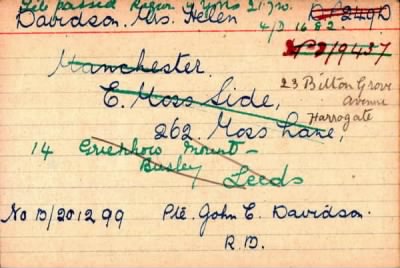 File passed Region 4 York 21/
Davidson. Mrs. Helen
4/D 1682. D 2490
9437
Manchester.
E. Moss Side,
262, Moss Lane,
23 Bilton Grove
Avenue
Harrogate
14 Greenhow Mount -
Burley
Leeds
No D/201299 Pte. John C. Davidson.
R.D.